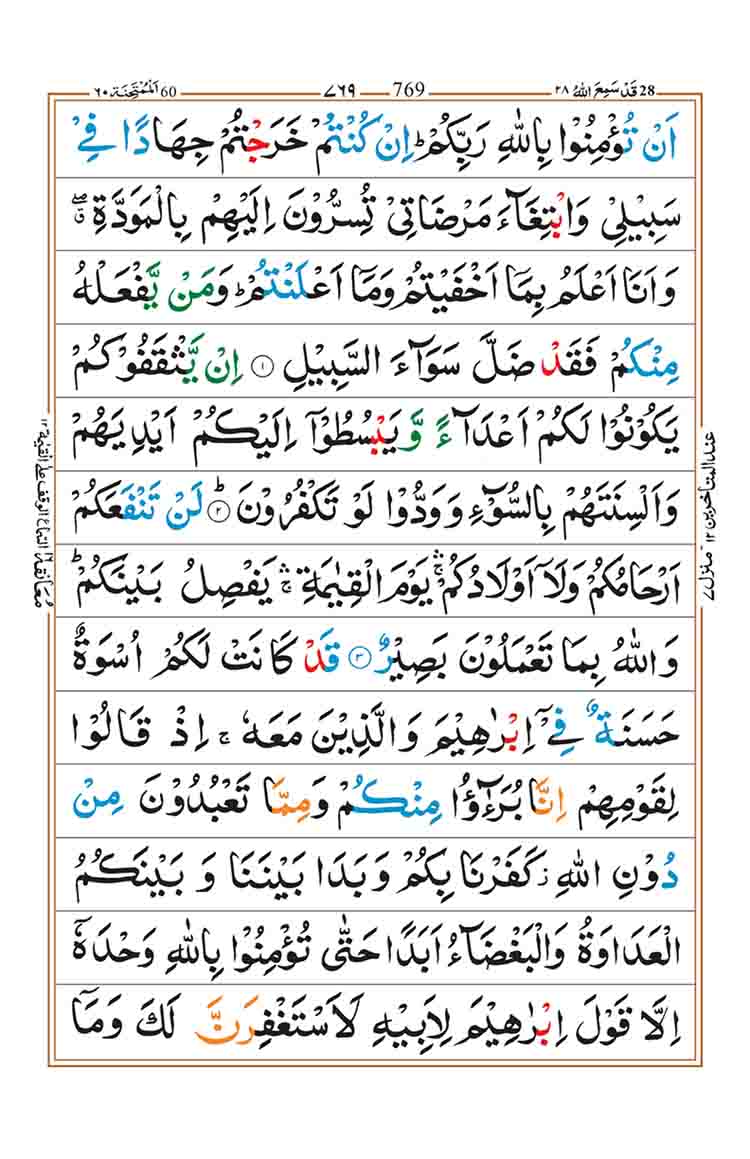 28 قَدْ سَمِعَ اللهُ ٢٨
769 ٧٦٩
60 اَلْمُمْتَحِنَة ٦٠
اَنْ تُؤْمِنُوْا بِاللّٰهِ رَبِّكُمْ ؕ اِنْ كُنْتُمْ خَرَجْتُمْ جِهَادًا فِيْ
سَبِيْلِيْ وَابْتِغَآءَ مَرْضَاتِيْ تُسِرُّوْنَ اِلَيْهِمْ بِالْمَوَدَّةِ ۖق
وَاَنَا اَعْلَمُ بِمَاۤ اَخْفَيْتُمْ وَمَاۤ اَعْلَنْتُمْ ؕ وَمَنْ يَّفْعَلْهُ
مِنْكُمْ فَقَدْ ضَلَّ سَوَآءَ السَّبِيْلِ ۝١ اِنْ يَّثْقَفُوْكُمْ
يَكُوْنُوْا لَكُمْ اَعْدَآءً وَّيَبْسُطُوْۤا اِلَيْكُمْ اَيْدِيَهُمْ
وَاَلْسِنَتَهُمْ بِالسُّوْٓءِ وَوَدُّوْا لَوْ تَكْفُرُوْنَ ؕ۝٢ لَنْ تَنْفَعَكُمْ
اَرْحَامُكُمْ وَلَاۤ اَوْلَادُكُمْ ۛۚ يَوْمَ الْقِيٰمَةِ ۛۚ يَفْصِلُ بَيْنَكُمْ ؕ
وَاللّٰهُ بِمَا تَعْمَلُوْنَ بَصِيْرٌ ۝٣ قَدْ كَانَتْ لَكُمْ اُسْوَةٌ
حَسَنَةٌ فِيْۤ اِبْرٰهِيْمَ وَالَّذِيْنَ مَعَهٗ ۚ اِذْ قَالُوْا
لِقَوْمِهِمْ اِنَّا بُرَءٰٓؤُا مِنْكُمْ وَمِمَّا تَعْبُدُوْنَ مِنْ
دُوْنِ اللّٰهِ ز كَفَرْنَا بِكُمْ وَبَدَا بَيْنَنَا وَبَيْنَكُمُ
الْعَدَاوَةُ وَالْبَغْضَآءُ اَبَدًا حَتّٰى تُؤْمِنُوْا بِاللّٰهِ وَحْدَهٗۤ
اِلَّا قَوْلَ اِبْرٰهِيْمَ لِاَبِيْهِ لَاَسْتَغْفِرَنَّ لَكَ وَمَاۤ
عند المتأخرين ١٢ منزل ٧
معانقة ١٢